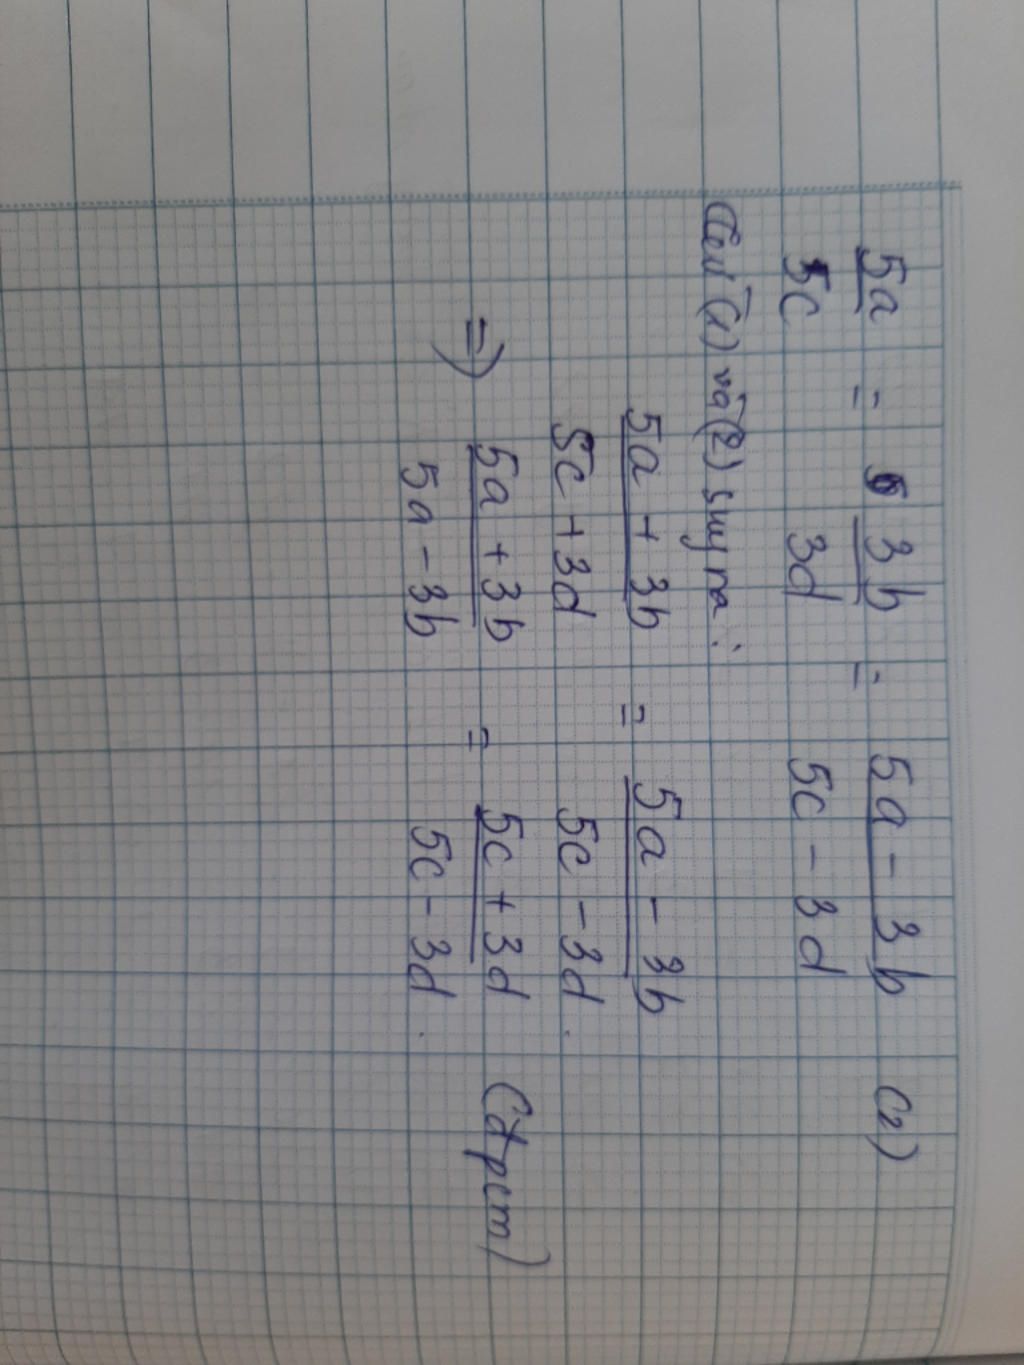 5a/5c = 3b/3d = 5a - 3b/5c - 3d (2)
Từ (1) và (2) suy ra :
5a + 3b/5c + 3d = 5a - 3b/5c - 3d .
=> 5a + 3b/5a - 3b = 5c + 3d/5c - 3d . (đpcm)